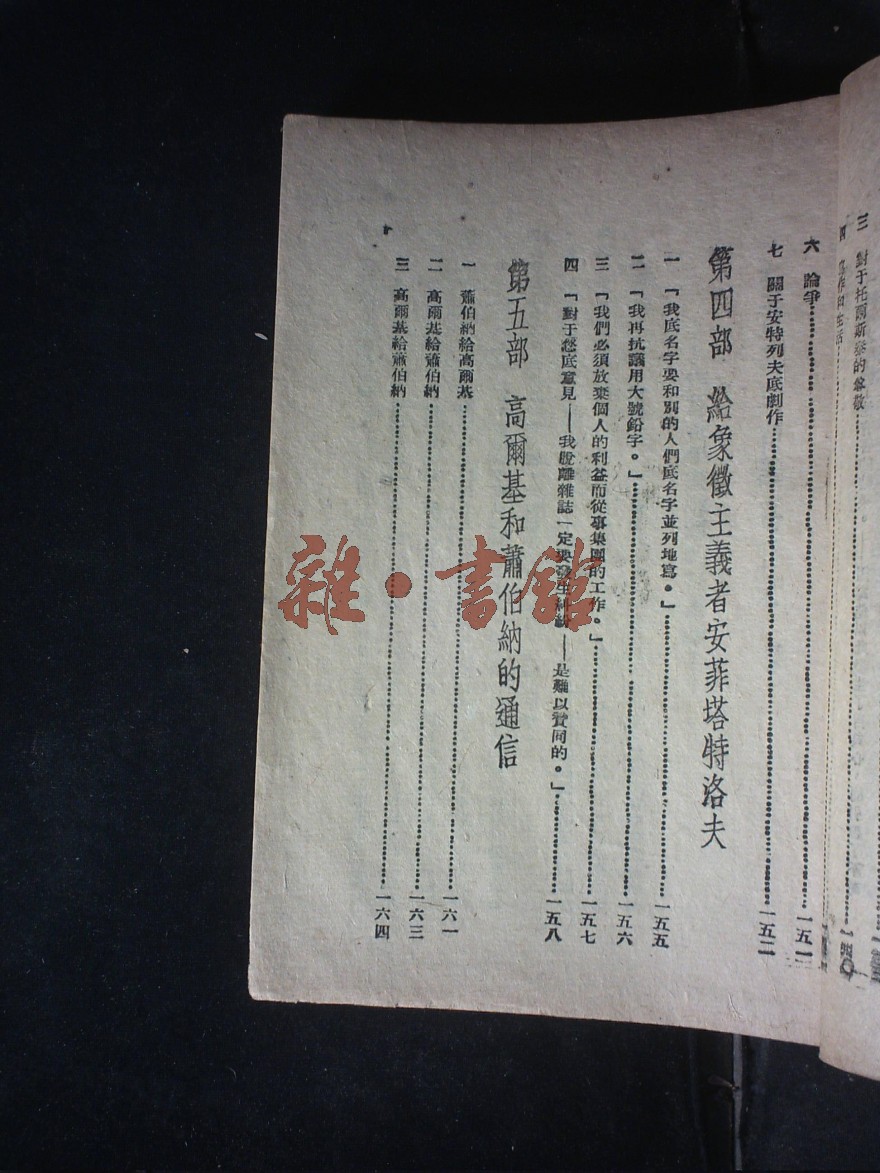 三 對于托爾斯泰的尊敬
四 寫作和生活 一四〇
六 論爭 一五一
七 關于安特列夫底劇作 一五二
第四部 給象徵主義者安菲塔特洛夫
一 「我底名字要和別的人們底名字並列地寫。」 一五五
二 「我再抗議用大號鉛字。」 一五六
三 「我們必須放棄個人的利益而從事集團的工作。」 一五七
四 「對于您底意見——我脫離雜誌一定要發生糾紛——是難以贊同的。」 一五八
第五部 高爾基和蕭伯納的通信
一 蕭伯納給高爾基 一六一
二 高爾基給蕭伯納 一六三
三 高爾基給蕭伯納 一六四
雜·書館